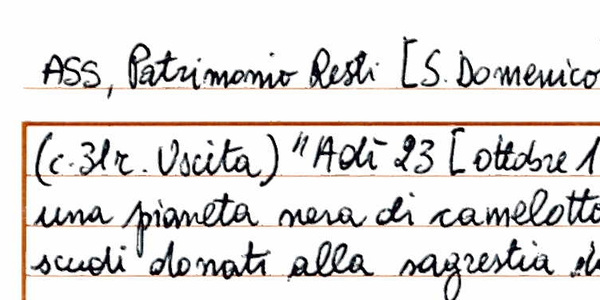 ASS, Patrimonio Resti [S. Domenico
(c.31r. Uscita) "Adì 23 [ottobre 1
una pianeta nera di camelotto
scudi donati alla sagrestia